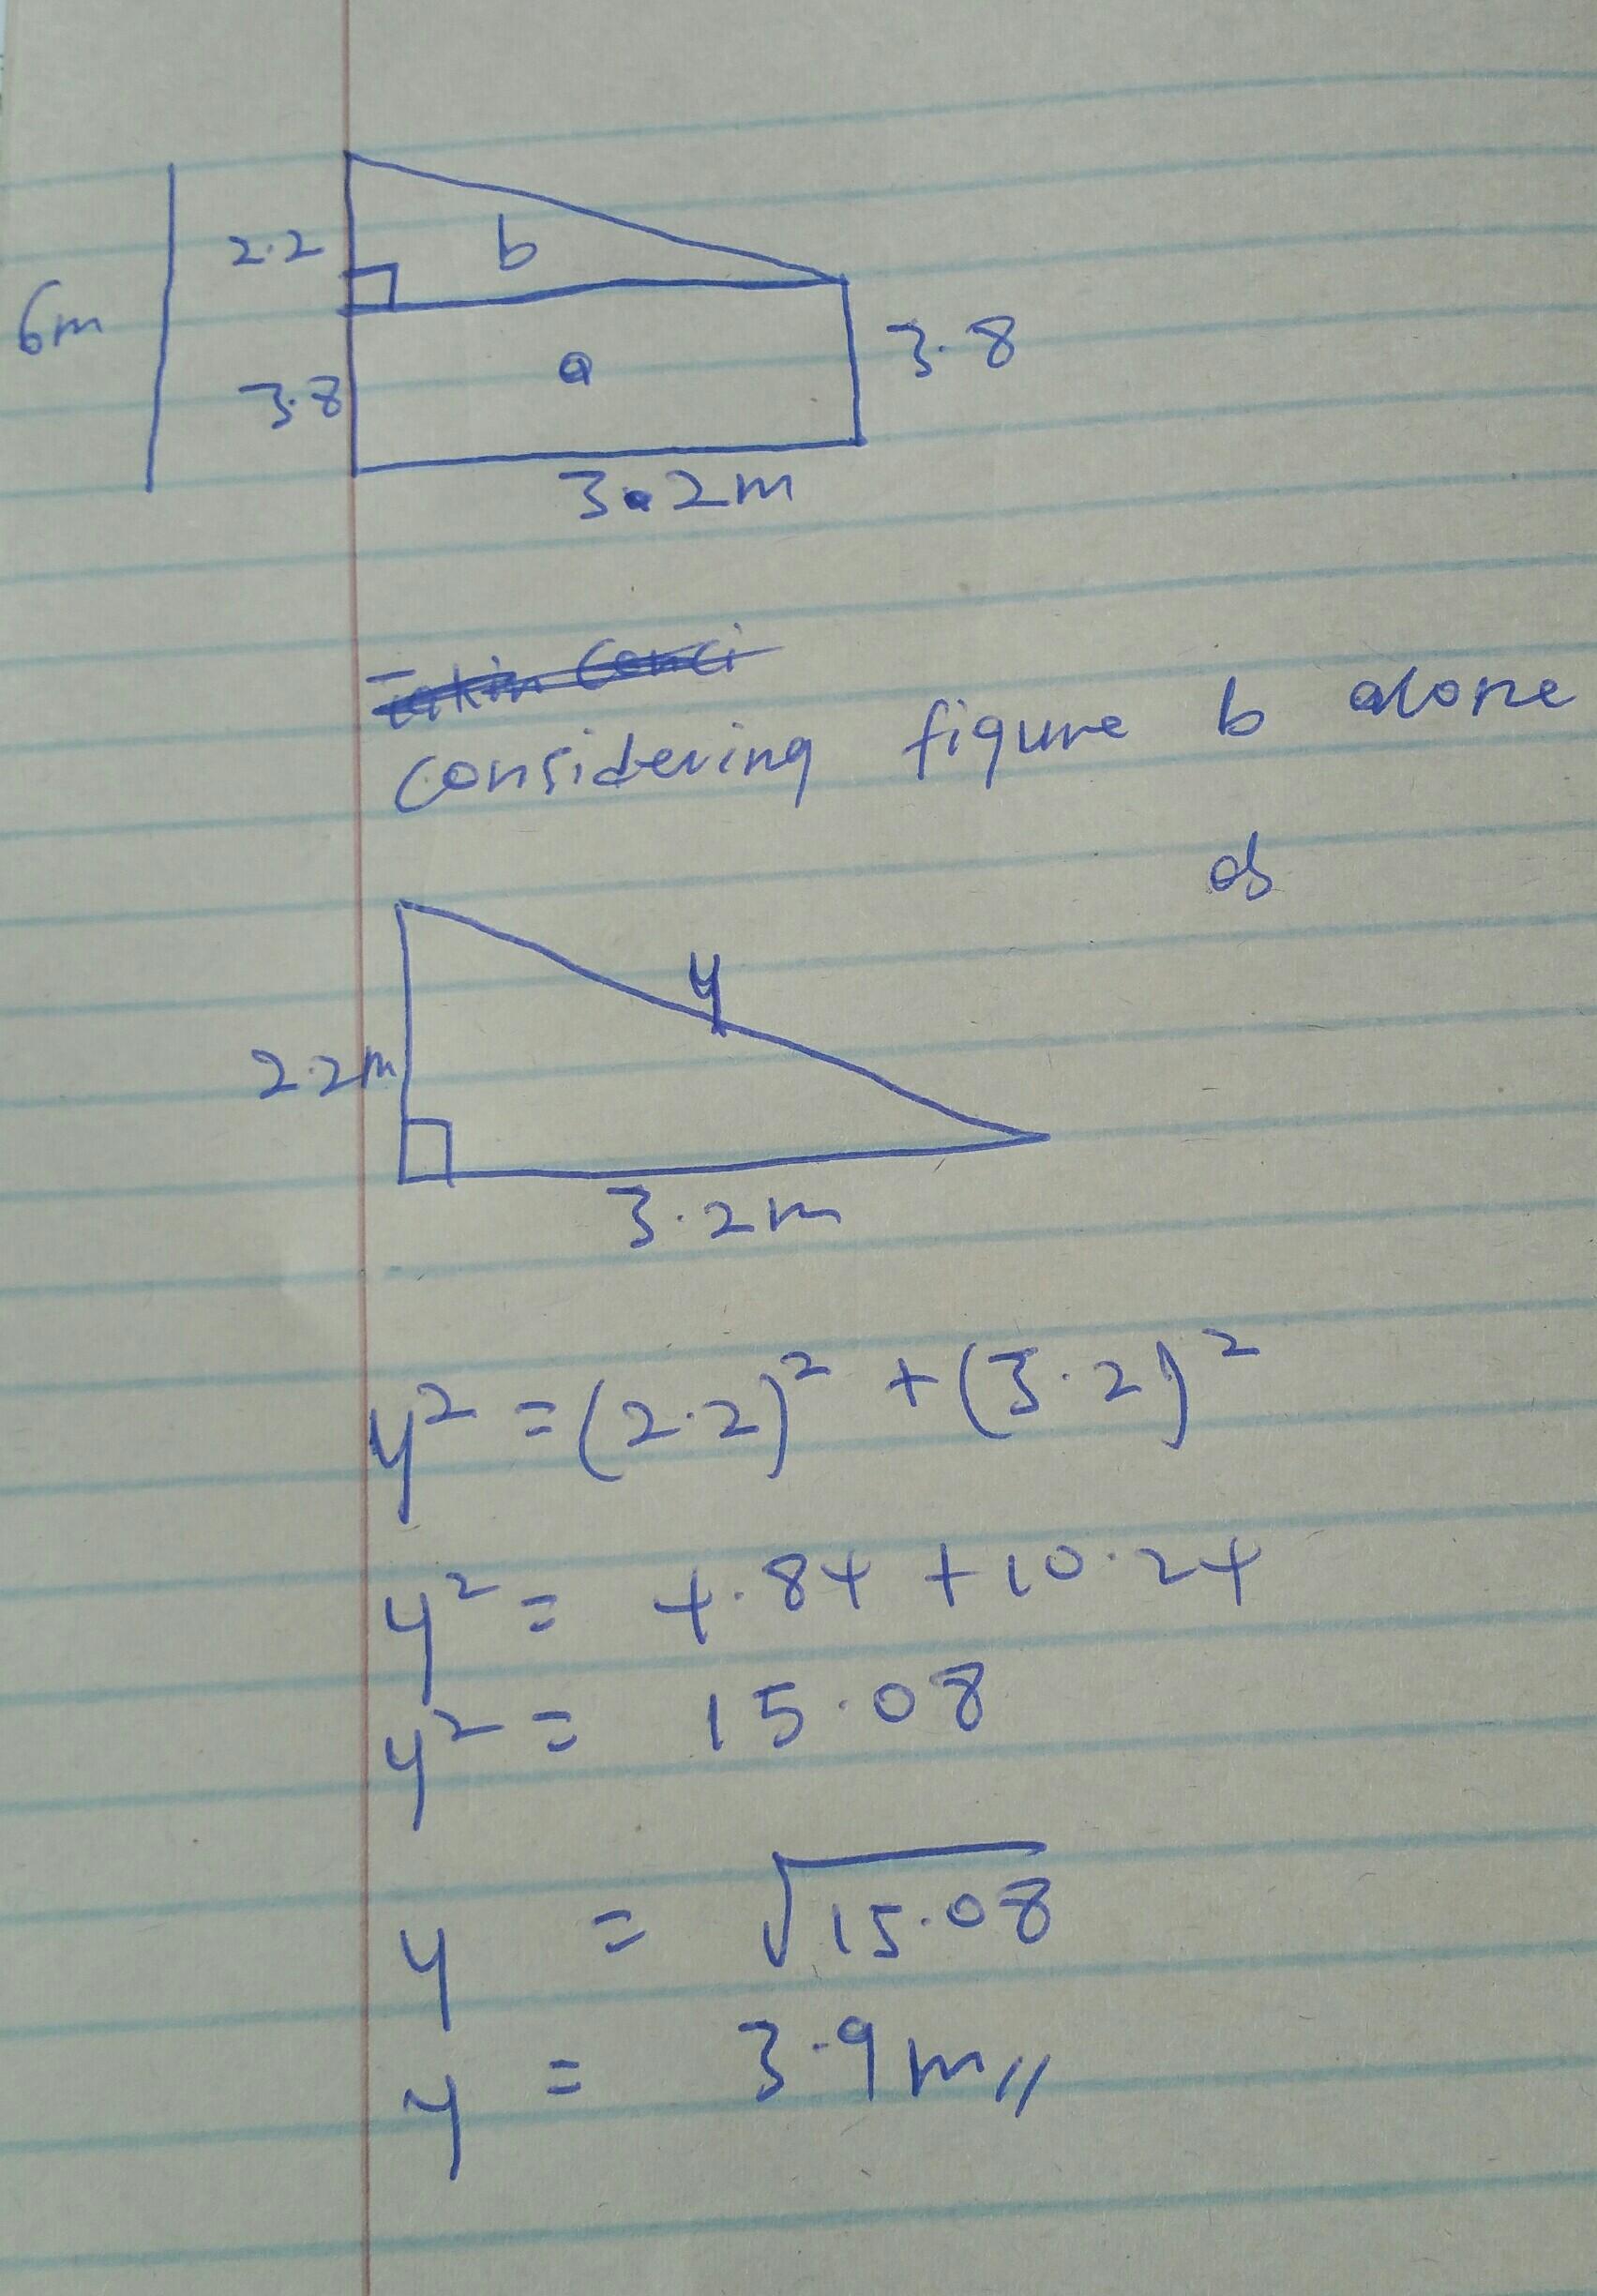 2.2
b
6m
a
3.8
3.8
3.2m
considering figure b alone
as
y
2.2m
3.2m
y² = (2.2)² + (3.2)²
y² = 4.84 + 10.24
y² = 15.08
y = √15.08
y = 3.9m//